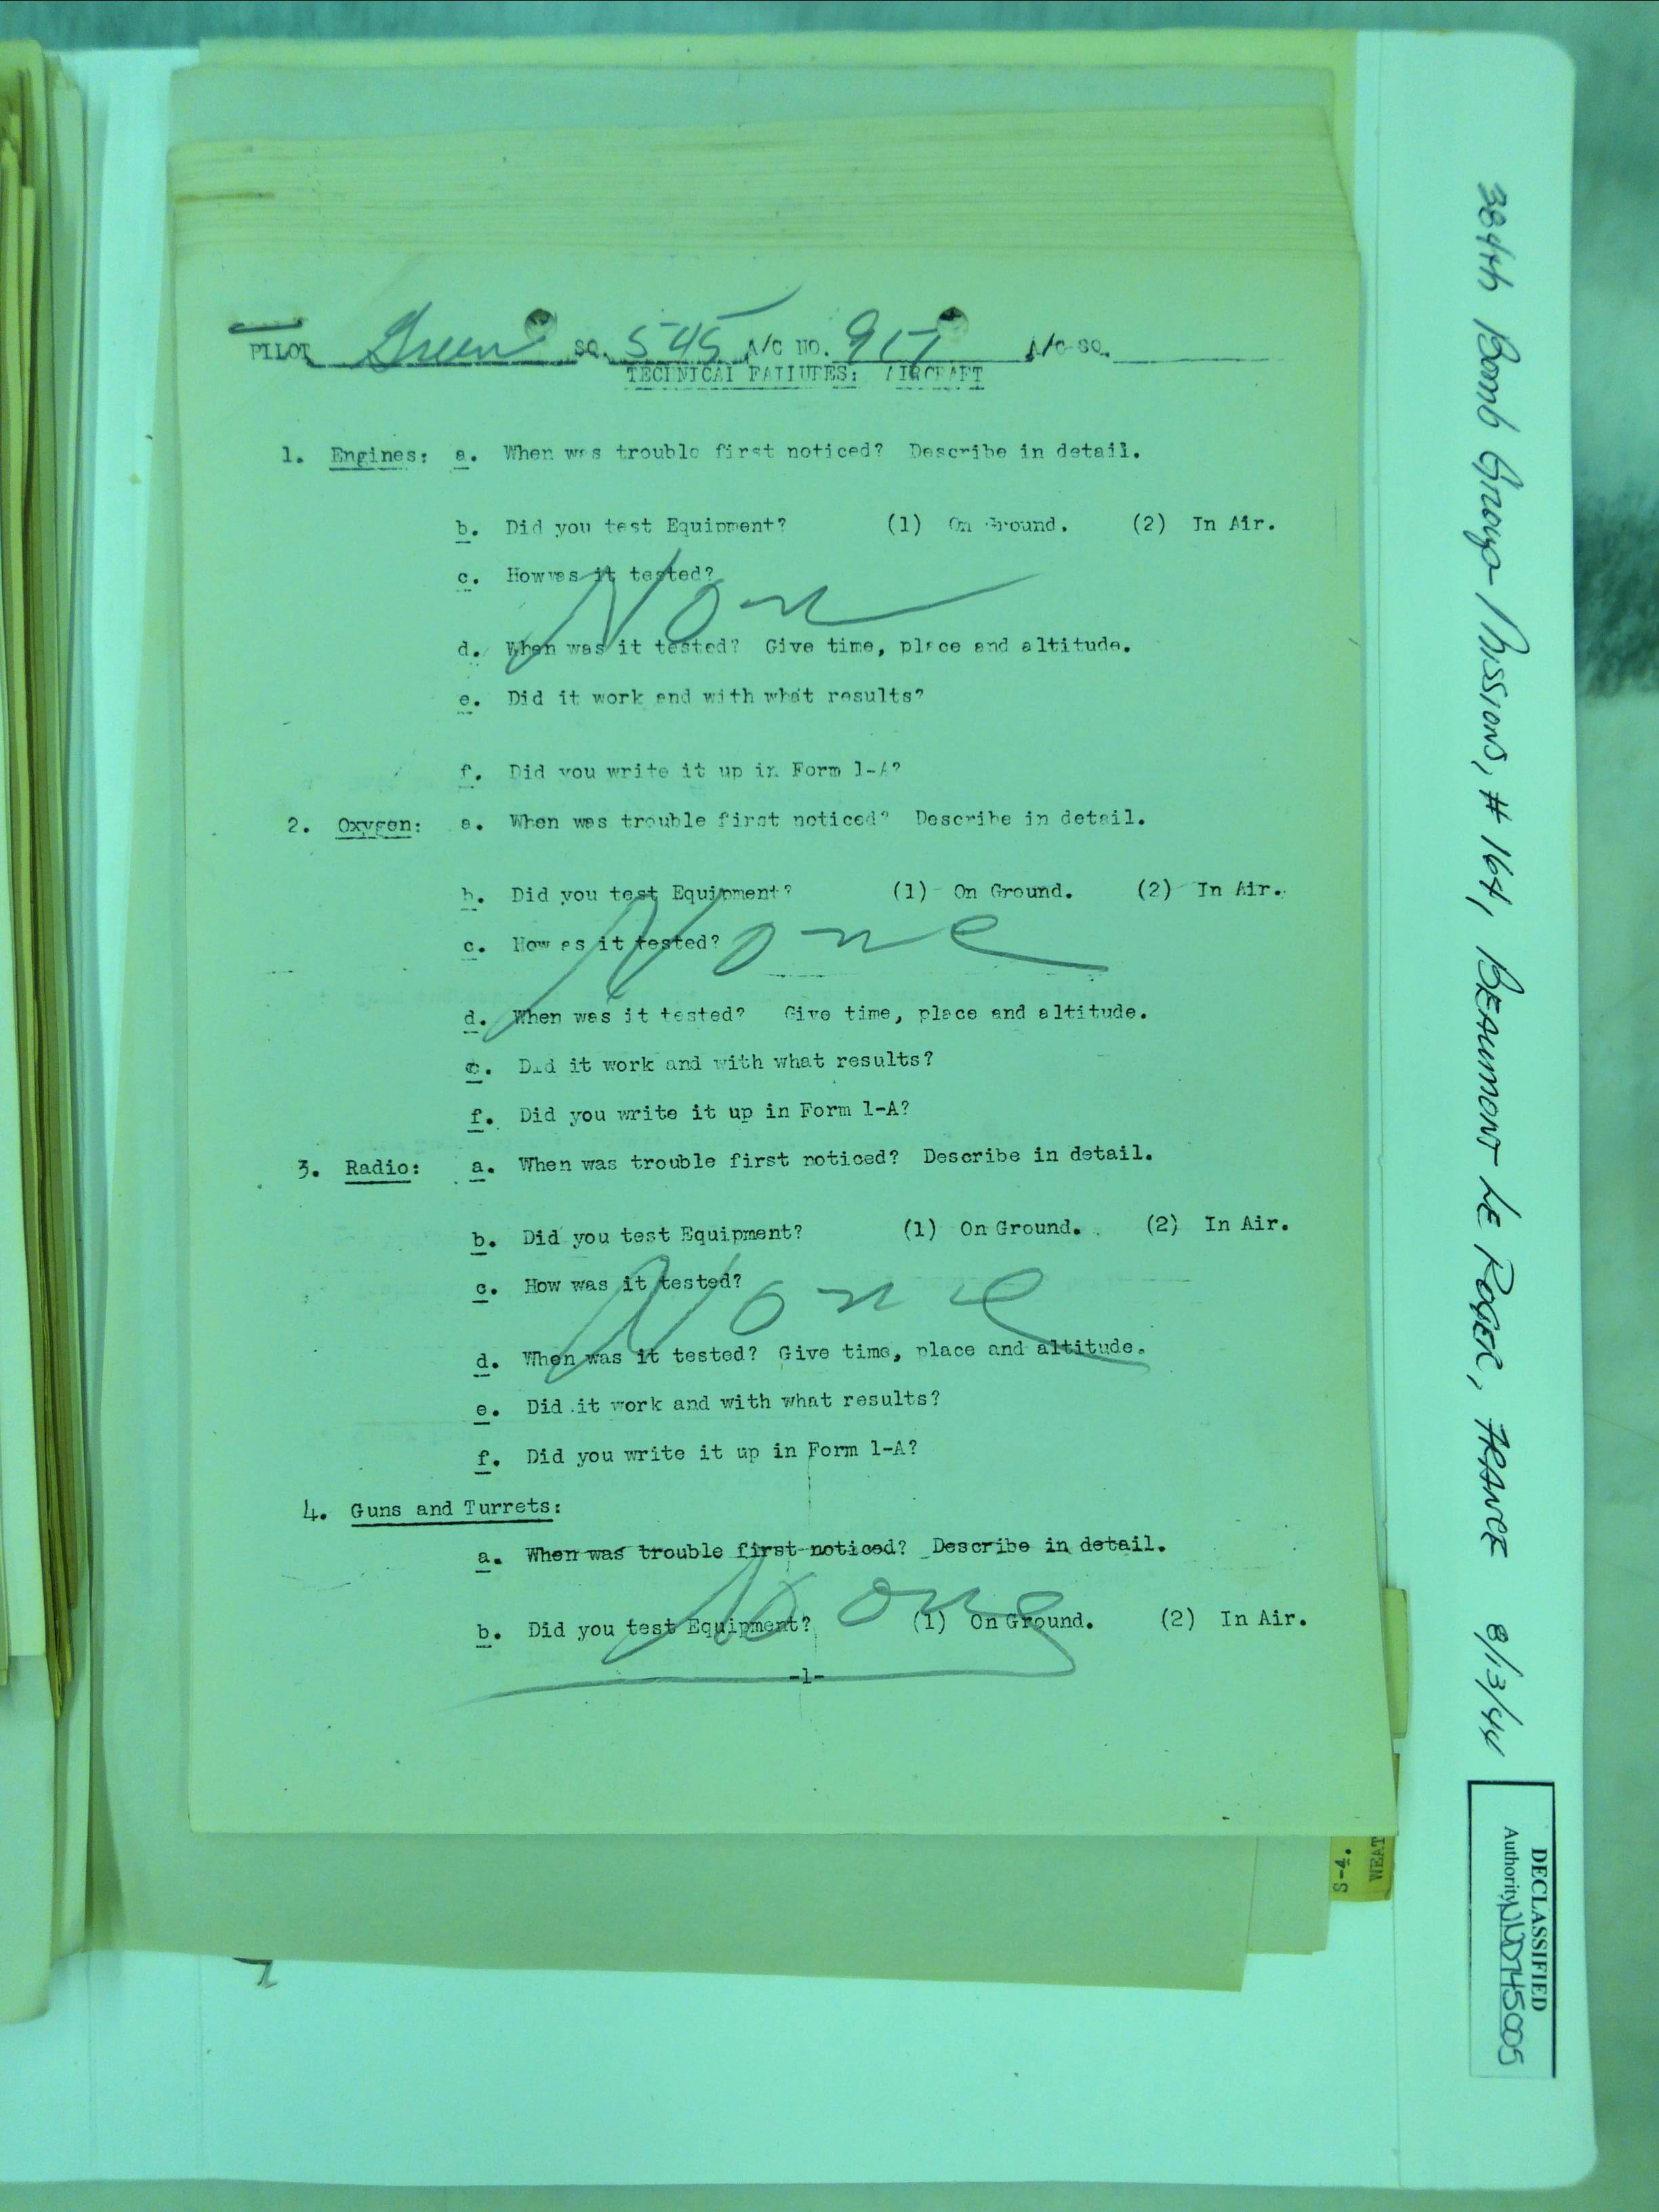 PILOT Green SQ. 545 A/C NO. 917 A/C SQ.
TECHNICAL FAILURES: AIRCRAFT
1. Engines: a. When was trouble first noticed? Describe in detail.
b. Did you test Equipment? (1) On Ground. (2) In Air.
c. How was it tested?
Non
d. When was it tested? Give time, place and altitude.
e. Did it work and with what results?
f. Did you write it up in Form 1-A?
2. Oxygen: a. When was trouble first noticed? Describe in detail.
b. Did you test Equipment? (1) On Ground. (2) In Air.
c. How as it tested?
None
d. When was it tested? Give time, place and altitude.
e. Did it work and with what results?
f. Did you write it up in Form 1-A?
3. Radio: a. When was trouble first noticed? Describe in detail.
b. Did you test Equipment? (1) On Ground. (2) In Air.
c. How was it tested?
None
d. When was it tested? Give time, place and altitude.
e. Did it work and with what results?
f. Did you write it up in Form 1-A?
4. Guns and Turrets:
a. When was trouble first noticed? Describe in detail.
None
b. Did you test Equipment? (1) On Ground. (2) In Air.
-1-
384th Bomb Group Missions, # 164, BEAUMONT LE ROGER, FRANCE 8/13/44
DECLASSIFIED
Authority NND745005
S-4.
WEAT